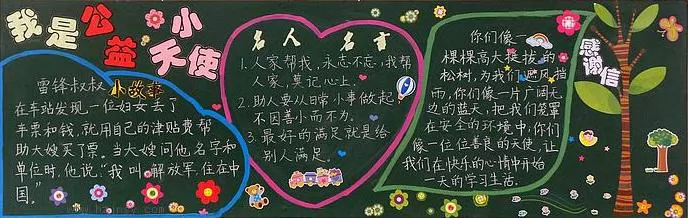 我是公益小天使
小故事
雷锋叔叔
在车站发现一位妇女丢了
车票和钱,就用自己的津贴费帮
助大嫂买了票。当大嫂问他名字和
单位时,他说:“我叫解放军,住在中
国。”
名人名言
1.人家帮我,永志不忘,我帮
人家,莫记心上。
2.助人要从日常小事做起,
不因善小而不为。
3.最好的满足就是给
别人满足。
感谢信
你们像一
棵棵高大挺拔的
松树,为我们遮风挡
雨,你们像一片广阔无
边的蓝天,把我们笼罩
在安全的环境中,你们
像一位位善良的天使,让
我们在快乐的心情中开始
一天的学习生活。